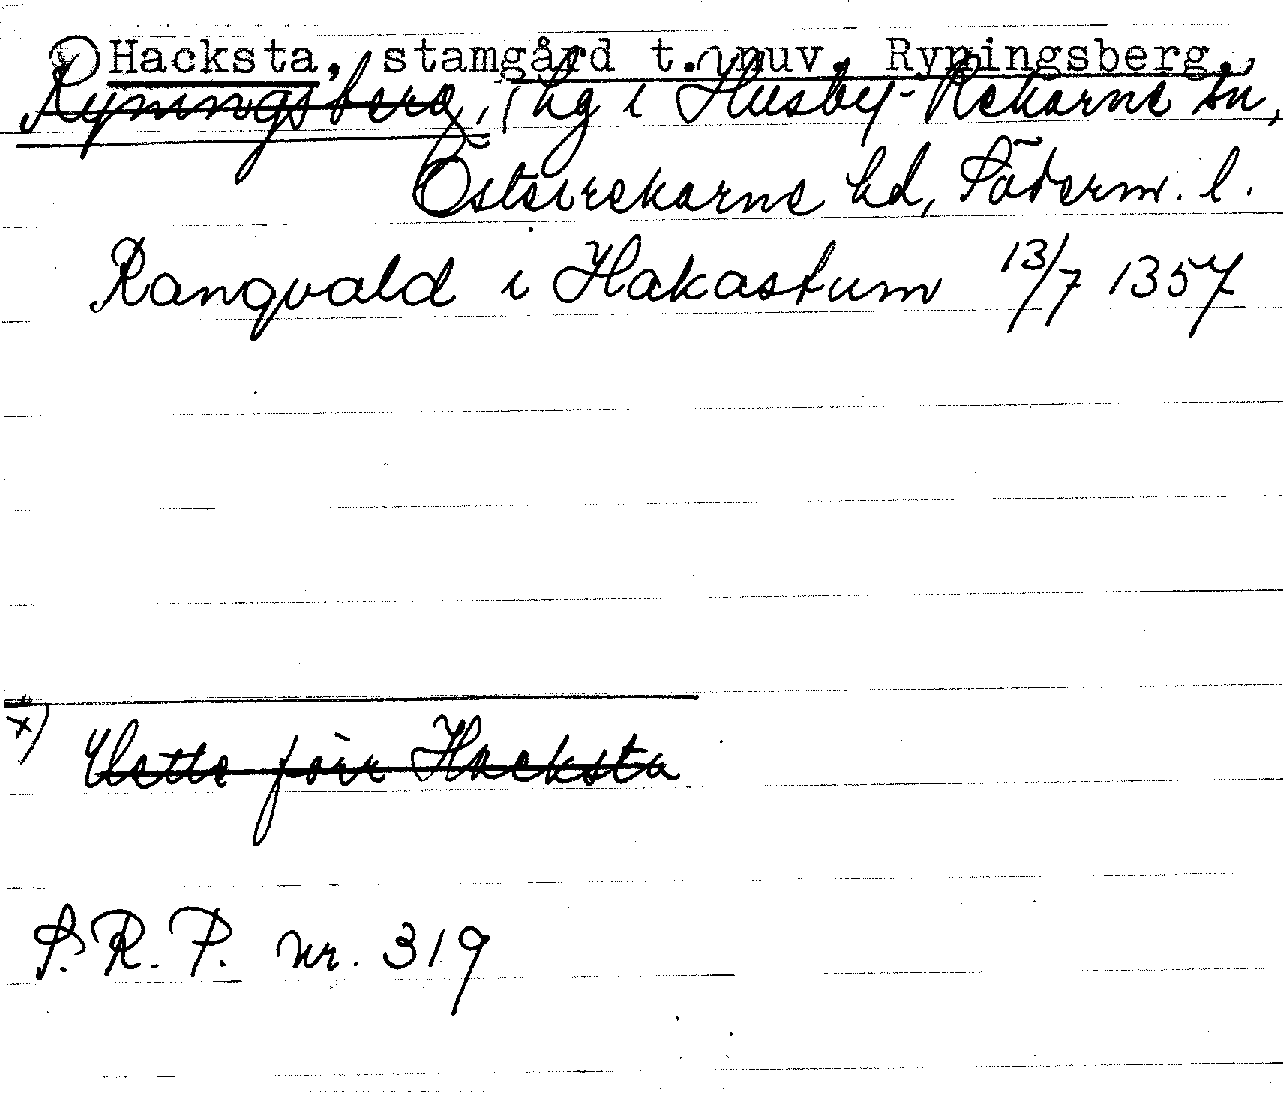 x) Hacksta, stamgård t. nuv. Ryningsberg,
Ryningsberg, hg i Husby-Rekarne sn,
Österrekarne hd, Söderm. l.
Rangvald i Hakastum 13/7 1357
x) Hette förr Hacksta
S.R.P. nr. 319